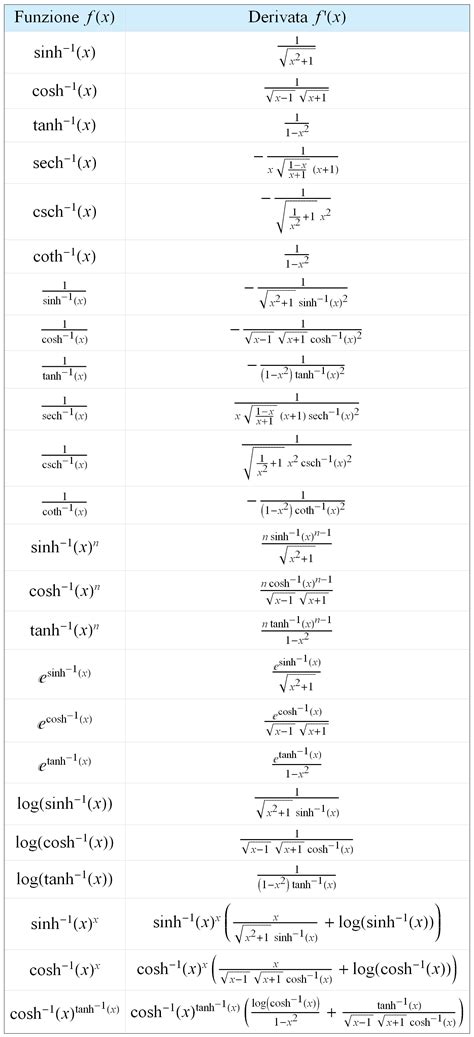 Funzione f(x) Derivata f'(x)
sinh⁻¹(x) 1/√(x²+1)
cosh⁻¹(x) 1/(√(x−1) √(x+1))
tanh⁻¹(x) 1/(1−x²)
sech⁻¹(x) −1/(x √((1−x)/(x+1)) (x+1))
csch⁻¹(x) −1/(√(1/x²+1) x²)
coth⁻¹(x) 1/(1−x²)
1/sinh⁻¹(x) −1/(√(x²+1) sinh⁻¹(x)²)
1/cosh⁻¹(x) −1/(√(x−1) √(x+1) cosh⁻¹(x)²)
1/tanh⁻¹(x) −1/((1−x²) tanh⁻¹(x)²)
1/sech⁻¹(x) 1/(x √((1−x)/(x+1)) (x+1) sech⁻¹(x)²)
1/csch⁻¹(x) 1/(√(1/x²+1) x² csch⁻¹(x)²)
1/coth⁻¹(x) −1/((1−x²) coth⁻¹(x)²)
sinh⁻¹(x)ⁿ n sinh⁻¹(x)ⁿ⁻¹/√(x²+1)
cosh⁻¹(x)ⁿ n cosh⁻¹(x)ⁿ⁻¹/(√(x−1) √(x+1))
tanh⁻¹(x)ⁿ n tanh⁻¹(x)ⁿ⁻¹/(1−x²)
e^(sinh⁻¹(x)) e^(sinh⁻¹(x))/√(x²+1)
e^(cosh⁻¹(x)) e^(cosh⁻¹(x))/(√(x−1) √(x+1))
e^(tanh⁻¹(x)) e^(tanh⁻¹(x))/(1−x²)
log(sinh⁻¹(x)) 1/(√(x²+1) sinh⁻¹(x))
log(cosh⁻¹(x)) 1/(√(x−1) √(x+1) cosh⁻¹(x))
log(tanh⁻¹(x)) 1/((1−x²) tanh⁻¹(x))
sinh⁻¹(x)ˣ sinh⁻¹(x)ˣ (x/(√(x²+1) sinh⁻¹(x)) + log(sinh⁻¹(x)))
cosh⁻¹(x)ˣ cosh⁻¹(x)ˣ (x/(√(x−1) √(x+1) cosh⁻¹(x)) + log(cosh⁻¹(x)))
cosh⁻¹(x)^(tanh⁻¹(x)) cosh⁻¹(x)^(tanh⁻¹(x)) (log(cosh⁻¹(x))/(1−x²) + tanh⁻¹(x)/(√(x−1) √(x+1) cosh⁻¹(x)))